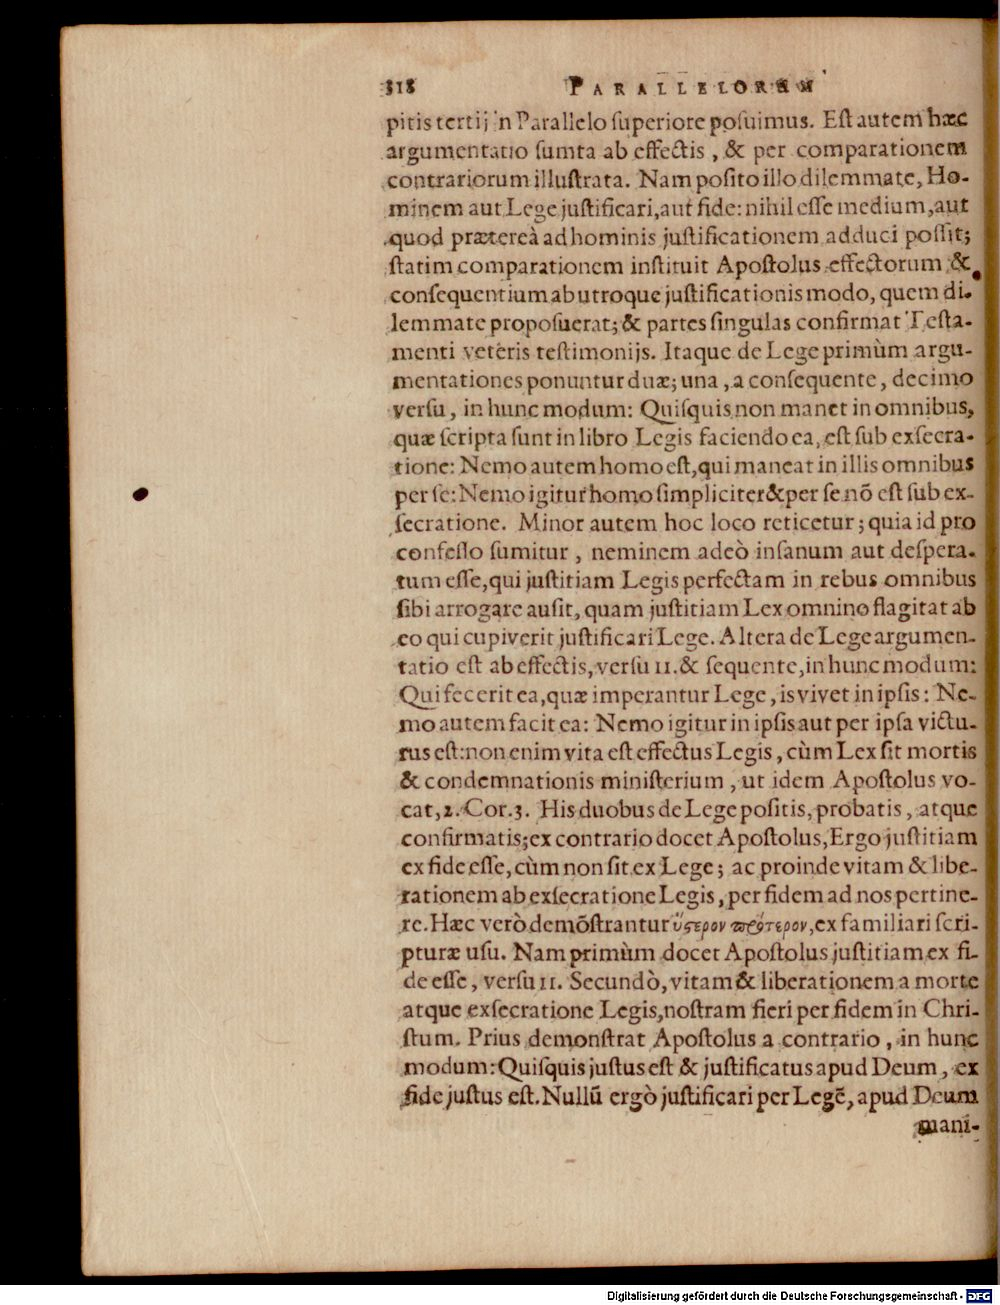 318 PARALLELORUM
pitis tertij in Parallelo superiore posuimus. Est autem hæc
argumentatio sumta ab effectis, & per comparationem
contrariorum illustrata. Nam posito illo dilemmate, Ho-
minem aut Lege justificari, aut fide: nihil esse medium, aut
quod prætereà ad hominis justificationem adduci possit;
statim comparationem instituit Apostolus effectorum &
consequentium ab utroque justificationis modo, quem di-
lemmate proposuerat; & partes singulas confirmat Testa-
menti veteris testimonijs. Itaque de Lege primùm argu-
mentationes ponuntur duæ; una, a consequente, decimo
versu, in hunc modum: Quisquis non manet in omnibus,
quæ scripta sunt in libro Legis faciendo ea, est sub exsecra-
tione: Nemo autem homo est, qui maneat in illis omnibus
per se: Nemo igitur homo simpliciter & per se nõ est sub ex-
secratione. Minor autem hoc loco reticetur; quia id pro
confesso sumitur, neminem adeò insanum aut despera-
tum esse, qui justitiam Legis perfectam in rebus omnibus
sibi arrogare ausit, quam justitiam Lex omnino flagitat ab
eo qui cupiverit justificari Lege. Altera de Lege argumen-
tatio est ab effectis, versu 11. & sequente, in hunc modum:
Qui fecerit ea, quæ imperantur Lege, is vivet in ipsis: Ne-
mo autem facit ea: Nemo igitur in ipsis aut per ipsa victu-
rus est: non enim vita est effectus Legis, cùm Lex sit mortis
& condemnationis ministerium, ut idem Apostolus vo-
cat, 2. Cor. 3. His duobus de Lege positis, probatis, atque
confirmatis; ex contrario docet Apostolus, Ergo justitiam
ex fide esse, cùm non sit ex Lege; ac proinde vitam & libe-
rationem ab exsecratione Legis, per fidem ad nos pertine-
re. Hæc verò demõstrantur ὕστερον πρότερον, ex familiari scri-
pturæ usu. Nam primùm docet Apostolus justitiam ex fi-
de esse, versu 11. Secundò, vitam & liberationem a morte
atque exsecratione Legis, nostram fieri per fidem in Chri-
stum. Prius demonstrat Apostolus a contrario, in hunc
modum: Quisquis justus est & justificatus apud Deum, ex
fide justus est. Nullũ ergò justificari per Legẽ, apud Deum
mani-
Digitalisierung gefördert durch die Deutsche Forschungsgemeinschaft - DFG